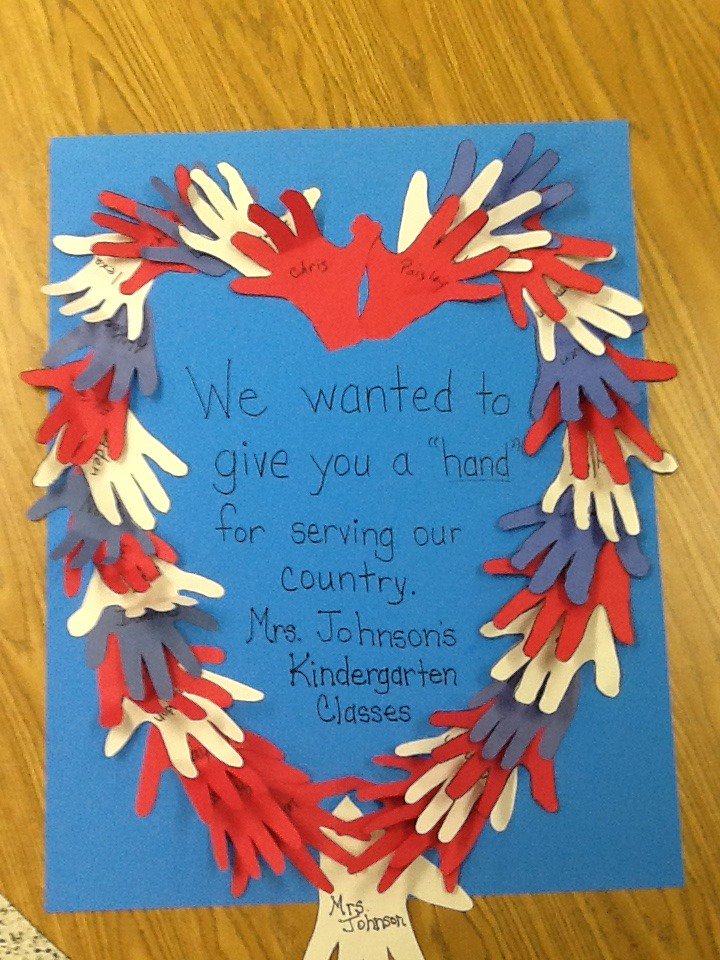 Chris
Paisley
We wanted to
give you a "hand"
for serving our
country.
Mrs. Johnson's
Kindergarten
Classes
Mrs.
Johnson